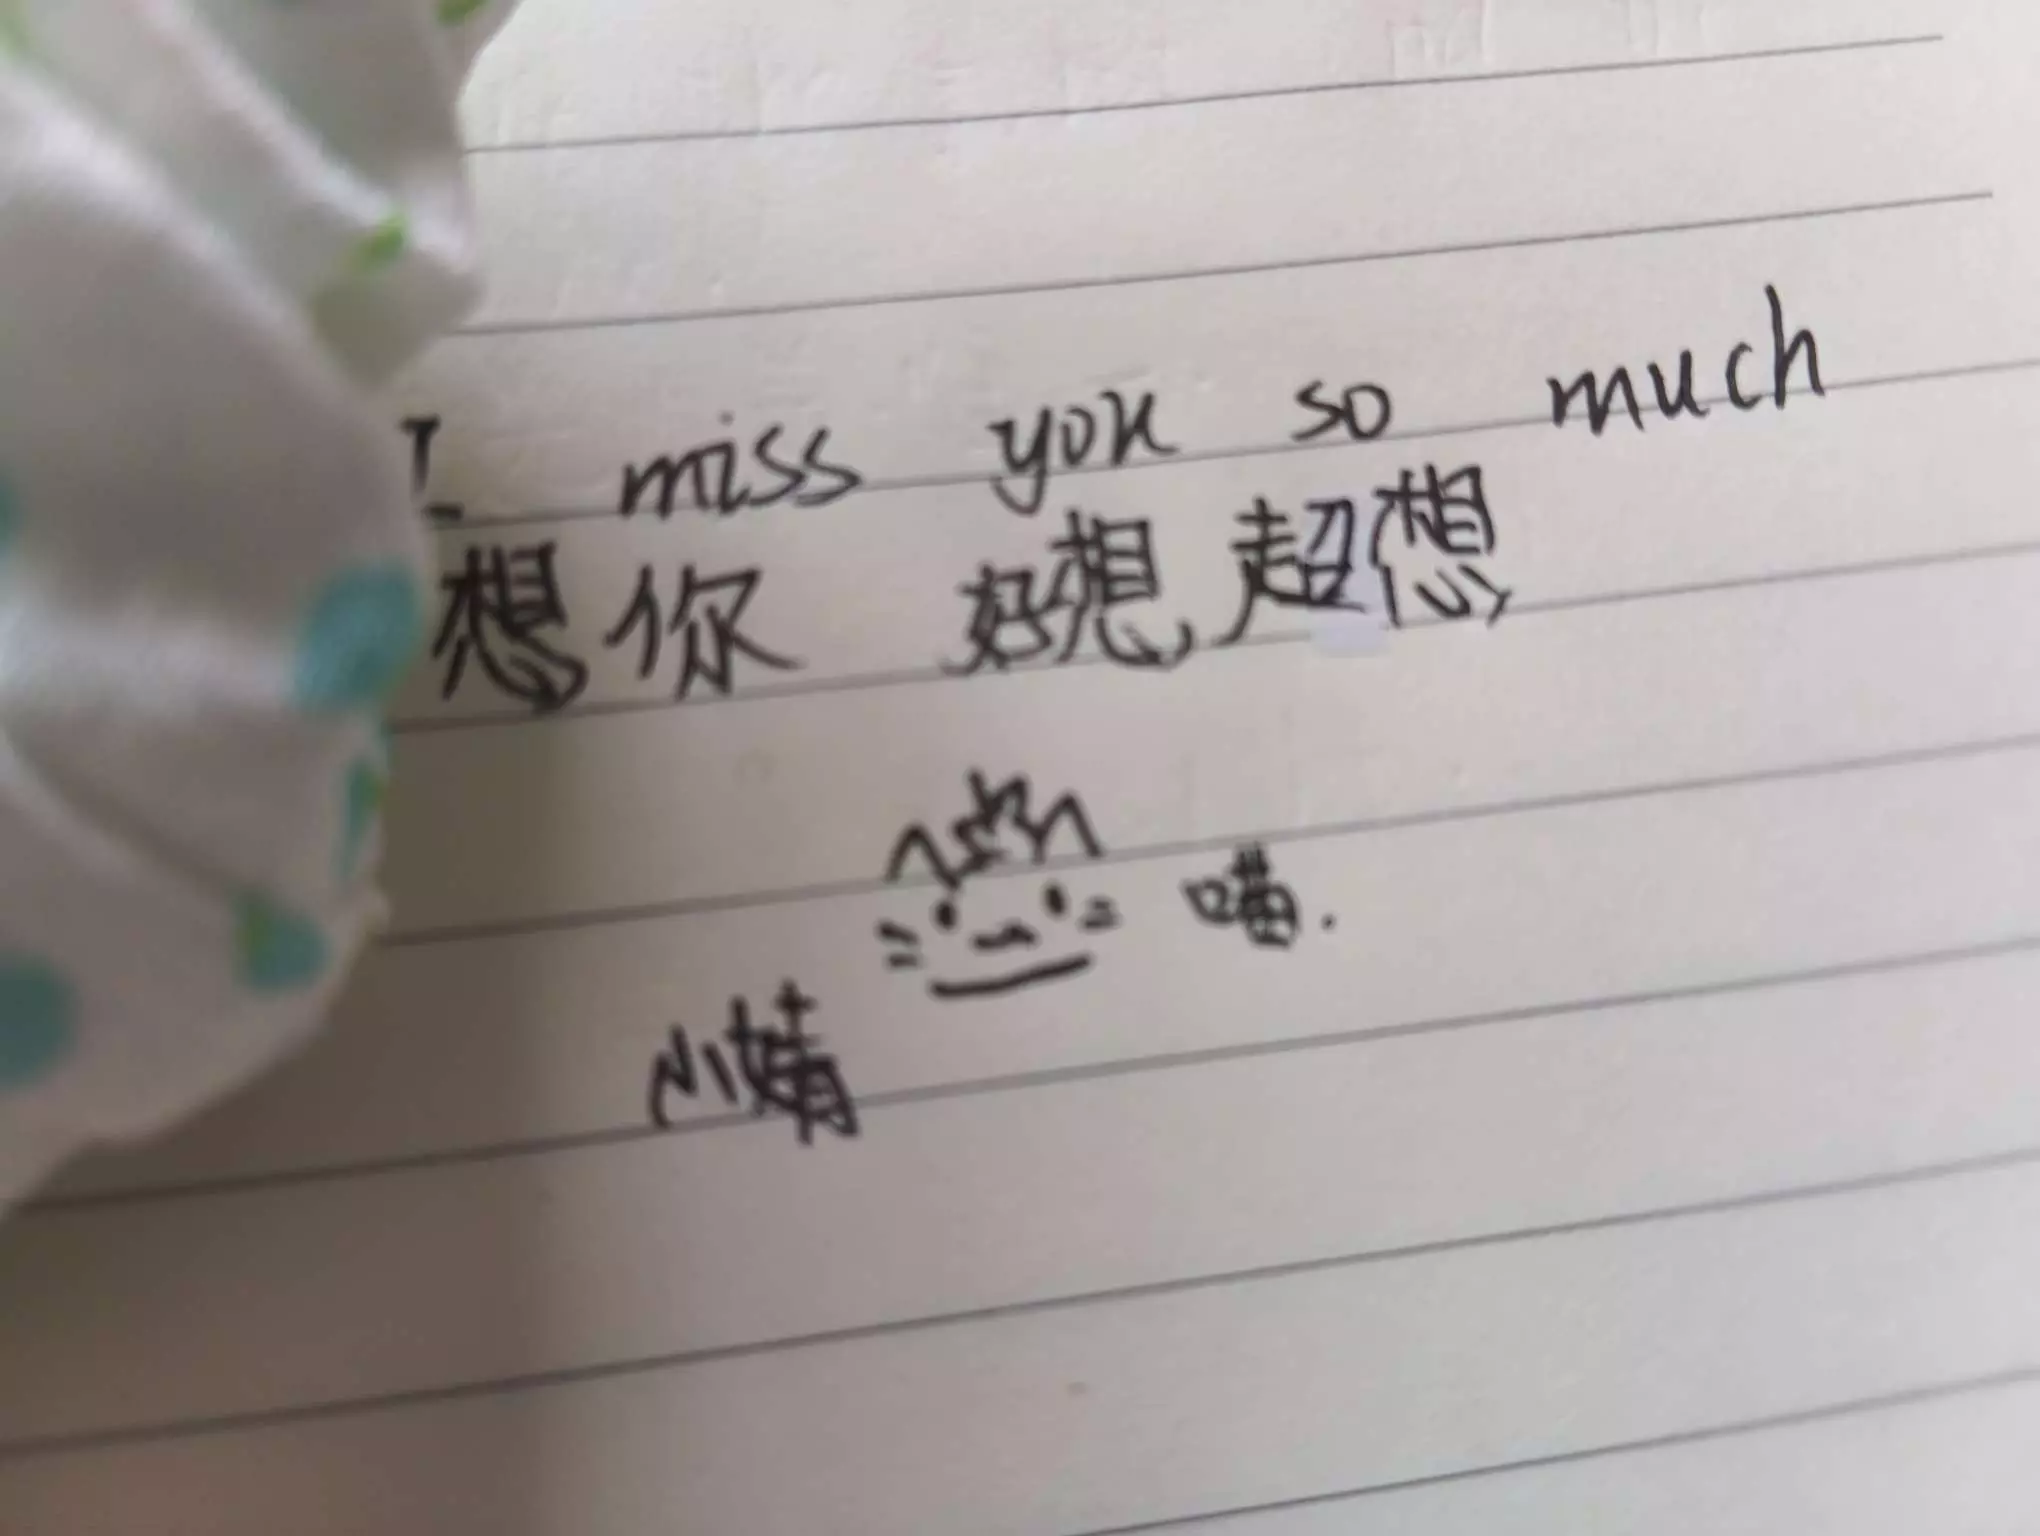 I miss you so much
想你 好想,超想
喵.
小婧